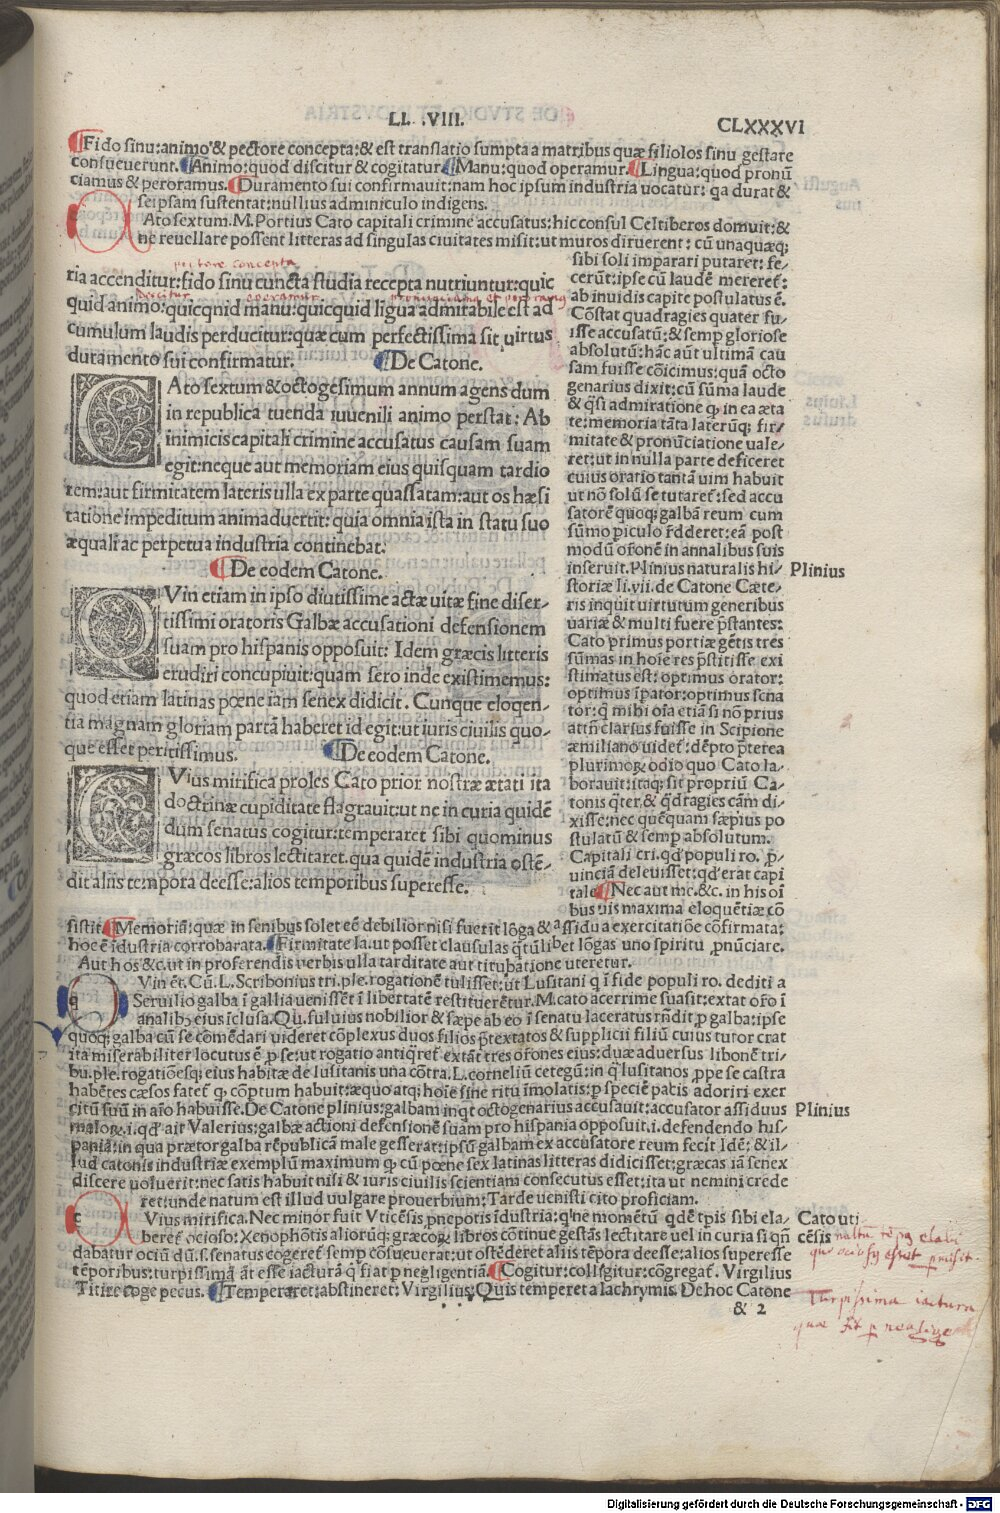 LI. .VIII.
CLXXXVI
Fido sinu: animo & pectore concepta: & est translatio sumpta a matribus quæ filiolos sinu gestare
consueuerunt. Animo: quod discitur & cogitatur. Manu: quod operamur. Lingua: quod pronũ
ciamus & peroramus. Duramento sui confirmauit: nam hoc ipsum industria uocatur: qa durat &
seipsam sustentat: nullius adminiculo indigens.
Ato sextum. M. Portius Cato capitali crimine accusatus: hic consul Celtiberos domuit: &
ne reuellare possent litteras ad singulas ciuitates misit: ut muros diruerent: cũ unaquæq;
sibi soli imparari putaret: fe/
cerũt: ipse cũ laudẽ mereret̃:
ab inuidis capite postulatus ẽ.
Cõstat quadragies quater fu/
isse accusatũ: & semp gloriose
absolutũ: hãc aũt ultimã cau
sam fuisse cõicimus: quã octo
genarius dixit: cũ sũma laude
& q̃si admiratione ꝙ in ea æta
te: memoria tãta laterũq; fir/
mitate & pronũciatione uale/
ret: ut in nulla parte deficeret
cuius oratio tantã uim habuit
ut nõ solũ se tutaret̃: sed accu
satorẽ quoq; galbã reum cum
sũmo piculo r̃dderet: eã post
modũ or̃onẽ in annalibus suis
inseruit. Plinius naturalis hi/
storiæ li. vii. de Catone Cæte/
ris inquit uirtutum generibus
uariæ & multi fuere p̃stantes:
Cato primus portiæ gẽtis tres
sũmas in hoie res p̃stitisse exi
stimatus est: optimus orator:
optimus ĩpator: optimus sena
tor: q̃ mihi oĩa etiã si nõ prius
attñ clarius fuisse in Scipione
æmiliano uidet̃: dẽpto p̃terea
plurimoꝝ odio quo Cato la/
borauit: itaq; sit propriũ Ca/
tonis q̃ter, & q̃dragies cãm di/
xisse: nec quẽquam sæpius po
stulatũ & semp absolutum.
Capitali cri. qđ populi ro. ꝓ/
uinciã deleuisset: qđ erat capi
tale. Nec aut me. &c. in his oĩ
bus uis maxima eloquẽtiæ cõ
pectore concepta
ria accenditur: fido sinu cuncta studia recepta nutriuntur: quic
discitur operamur pronunciamus et peroramus
quid animo: quicqnid manu: quicquid ligua admitabile est ad
cumulum laudis perducitur: quæ cum perfectissima sit uirtus
duramento sui confirmatur.
De Catone.
CAto sextum & octogesimum annum agens dum
in republica tuenda iuuenili animo perstat: Ab
inimicis capitali crimine accusatus causam suam
egit: neque aut memoriam eius quisquam tardio
rem: aut firmitatem lateris ulla ex parte quassatam: aut os hæsi
tatione impeditum animaduertit: quia omnia ista in statu suo
æquali ac perpetua industria continebat.
De eodem Catone.
QVin etiam in ipso diutissime actæ uitæ fine diser/
tissimi oratoris Galbæ accusationi defensionem
suam pro hispanis opposuit: Idem græcis litteris
erudiri concupiuit: quam sero inde existimemus:
quod etiam latinas pœne iam senex didicit. Cunque eloqen/
tia magnam gloriam partã haberet id egit: ut iuris ciuilis quo/
que esset peritissimus.
De eodem Catone.
CVius mirifica proles Cato prior nostræ ætati ita
doctrinæ cupiditate flagrauit: ut ne in curia quidẽ
dum senatus cogitur: temperaret sibi quominus
græcos libros lectitaret. qua quidẽ industria ostẽ/
dit aliis tempora deesse: alios temporibus superesse.
Plinius
sistit. Memoriã: quæ in senibus solet eẽ debilior nisi fuerit lõga & assidua exercitatiõe cõfirmata:
hoc ẽ ĩdustria corroborata. Firmitate la. ut posset clausulas q̃tũlibet lõgas uno spiritu ꝓnũciare.
Aut hos &c. ut in proferendis verbis ulla tarditate aut titubatione uteretur.
qVin eť. Cũ. L. Scribonius tri. ple. rogationẽ tulisset: ut Lusitani q̃ ĩ fide populi ro. dediti a
Seruilio galba ĩ gallia uenissẽt ĩ libertatẽ restituerẽtur. M. cato acerrime suasit: extat or̃o ĩ
analibꝫ eius ĩclusa. Qu. fuluius nobilior & sæpe ab eo ĩ senatu laceratus rñdit ꝓ galba: ipse
quoq; galba cũ se cõmẽdari uideret cõplexus duos filios p̃textatos & supplicii filiũ cuius tutor erat
ita miserabiliter locutus ẽ ꝓ se: ut rogatio antiq̃ret̃ extãt tres or̃ones eius: duæ aduersus libonẽ tri/
bu. ple. rogatiõesq; eius habitæ de lusitanis una cõtra. L. corneliũ cetegũ: in q̃ lusitanos ꝓpe se castra
habẽtes cæsos fatet̃ ꝙ cõptum habuit: æquo atq; hoĩe sine ritu ĩmolatis: ꝑ speciẽ pacis adoriri exer
citũ suũ in aĩo habuisse. De Catone plinius: galbam inqt octogenarius accusauit: accusator assiduus
maloꝝ. i. qđ ait Valerius: galbæ actioni defensionẽ suam pro hispania opposuit. i. defendendo his/
paniã: in qua prætor galba rẽpublicã male gesserat: ipsũ galbam ex accusatore reum fecit Idẽ: & il/
lud catonis industriæ exemplũ maximum ꝙ cũ pœne sex latinas litteras didicisset: græcas iã senex
discere uoluerit: nec satis habuit nisi & iuris ciuilis scientiam consecutus esset: ita ut nemini crede
ret: unde natum est illud uulgare prouerbium: Tarde uenisti cito proficiam.
Plinius
cVius mirifica. Nec minor fuit Vticẽsis ꝓnepotis ĩdustria: q̃ ne momẽtũ qđẽ tp̃is sibi ela/
beret̃ ocioso: Xenophõtis alioruq; græcoꝝ libros cõtinue gestãs lectitare uel in curia si qñ
dabatur ociũ dũ. s. senatus cogeret̃ semp cõsueuerat: ut ostẽderet aliis tẽpora deesse: alios superesse
tẽporibus: turpissimã aũt esse iacturã q̃ fiat ꝑ negligentiã. Cogitur: colligitur: cõgregat̃. Virgilius
Titire coge pecus. Temperaret: abstineret: Virgilius: Quis temperet a lachrymis. De hoc Catone
& 2
Cato uti
cẽsis
turpissima iactura
quae fit ꝑ neglige
Digitalisierung gefördert durch die Deutsche Forschungsgemeinschaft - DFG